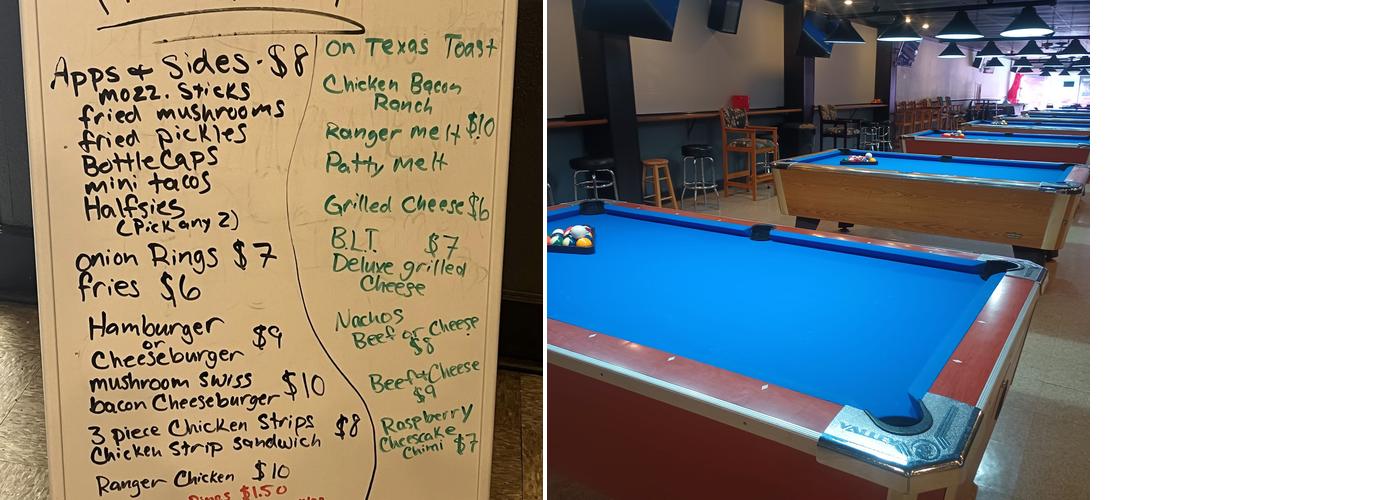 Apps & Sides - $8
mozz. sticks
fried mushrooms
fried pickles
Bottle Caps
mini tacos
Halfsies
(Pick any 2)
onion Rings $7
fries $6
Hamburger
or
Cheeseburger $9
mushroom swiss
bacon Cheeseburger $10
3 piece Chicken Strips
Chicken Strip Sandwich $8
Ranger Chicken $10
$1.50
on Texas Toast
Chicken Bacon
Ranch
Ranger melt $10
Patty melt
Grilled Cheese $6
B.L.T. $7
Deluxe grilled
Cheese
Nachos
Beef or Cheese
$8
Beef & Cheese
$9
Raspberry
Cheescake
Chimi $7
VALLEY